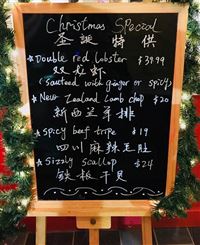 Christmas Special
圣诞特供
★ Double red lobster $39.99
双龙虾
(sauteed with ginger or spicy)
★ New Zealand lamb chop $20
新西兰羊排
★ Spicy beef tripe $19
四川麻辣毛肚
★ Sizzly scallop $24
铁板干贝